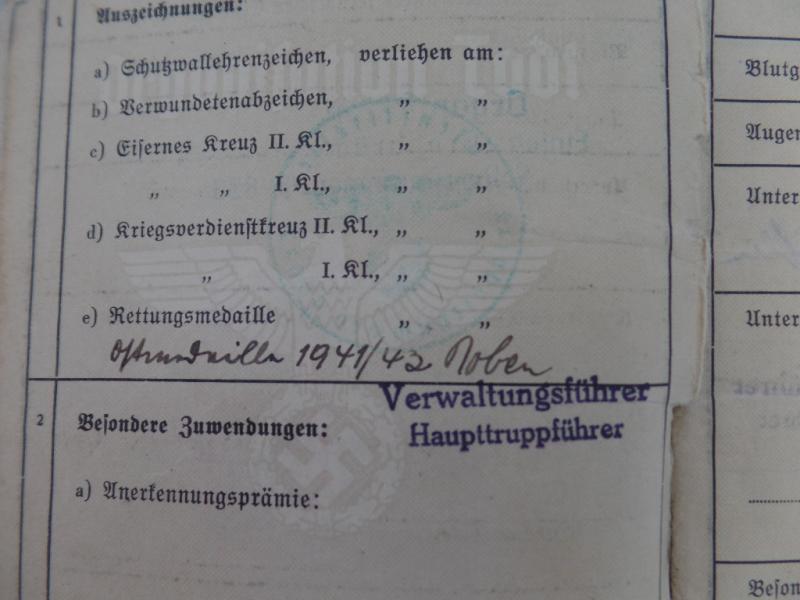 1 Auszeichnungen:
a) Schutzwallehrenzeichen, verliehen am:
b) Verwundetenabzeichen, „ „
c) Eisernes Kreuz II. Kl., „ „
„ „ I. Kl., „ „
d) Kriegsverdienstkreuz II. Kl., „ „
„ I. Kl., „ „
e) Rettungsmedaille „ „
1941/42
Verwaltungsführer
Haupttruppführer
2 Besondere Zuwendungen:
a) Anerkennungsprämie:
Blutg
Augen
Unter
Unter
Beson